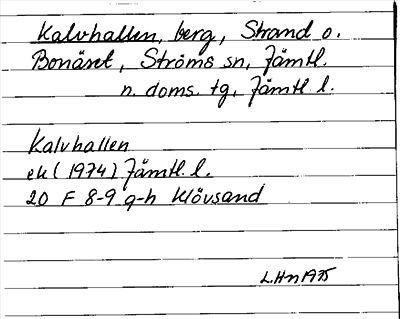 Kalvhallen, berg, Strand o.
Bonäset, Ströms sn, Jämtl.
n. doms. tg, Jämtl l.
Kalvhallen
ek (1974) Jämtl. l.
20 F 8-9 g-h Klövsand
L.Hn 1975